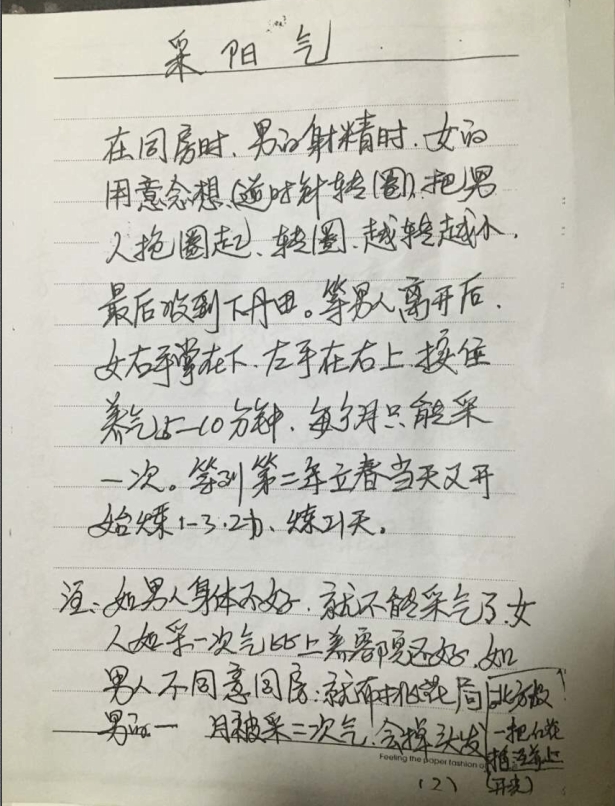 采阳气
在同房时、男的射精时、女的
用意念想、(逆时针转圈)、把男
人抱圈起、转圈、越转越小、
最后收到下丹田。等男人离开后、
女右手掌在下、左手在右上、按住
养气5—10分钟、每个月只能采
一次。等到第二年立春当天又开
始炼1-3.2功、炼21天。
注:如男人身体不好、就不能采气了、女
人如采一次气比上美容院还好、如
男人不同意同房:就布桃花局
男的一月被采二次气、会掉头发
北方放
一把红花
插活
(开光)
Feeling the paper fashion
(2)